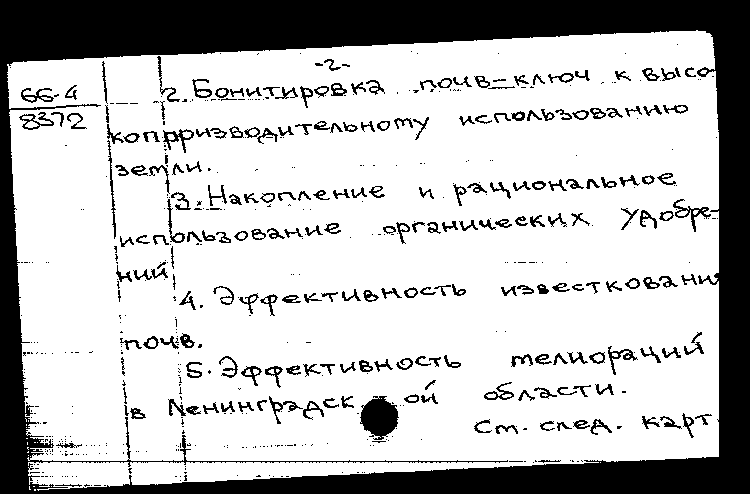 -2-
66-4
8372
2. Бонитировка почв-ключ к высо-
копрризводительному использованию
земли.
3. Накопление и рациональное
использование органических удобре-
ний
4. Эффективность известковани
почв.
5. Эффективность мелиораций
в Ленинградск ой области.
См. след. карт